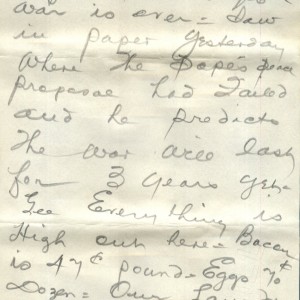 war is over - Saw
in paper yesterday
Where the Pope's peace
proposal had Failed
and he predicts
the war will last
for 3 years yet -
Gee Everything is
High out here - Bacon
is 47¢ pound - Eggs 70¢
Dozen - Our